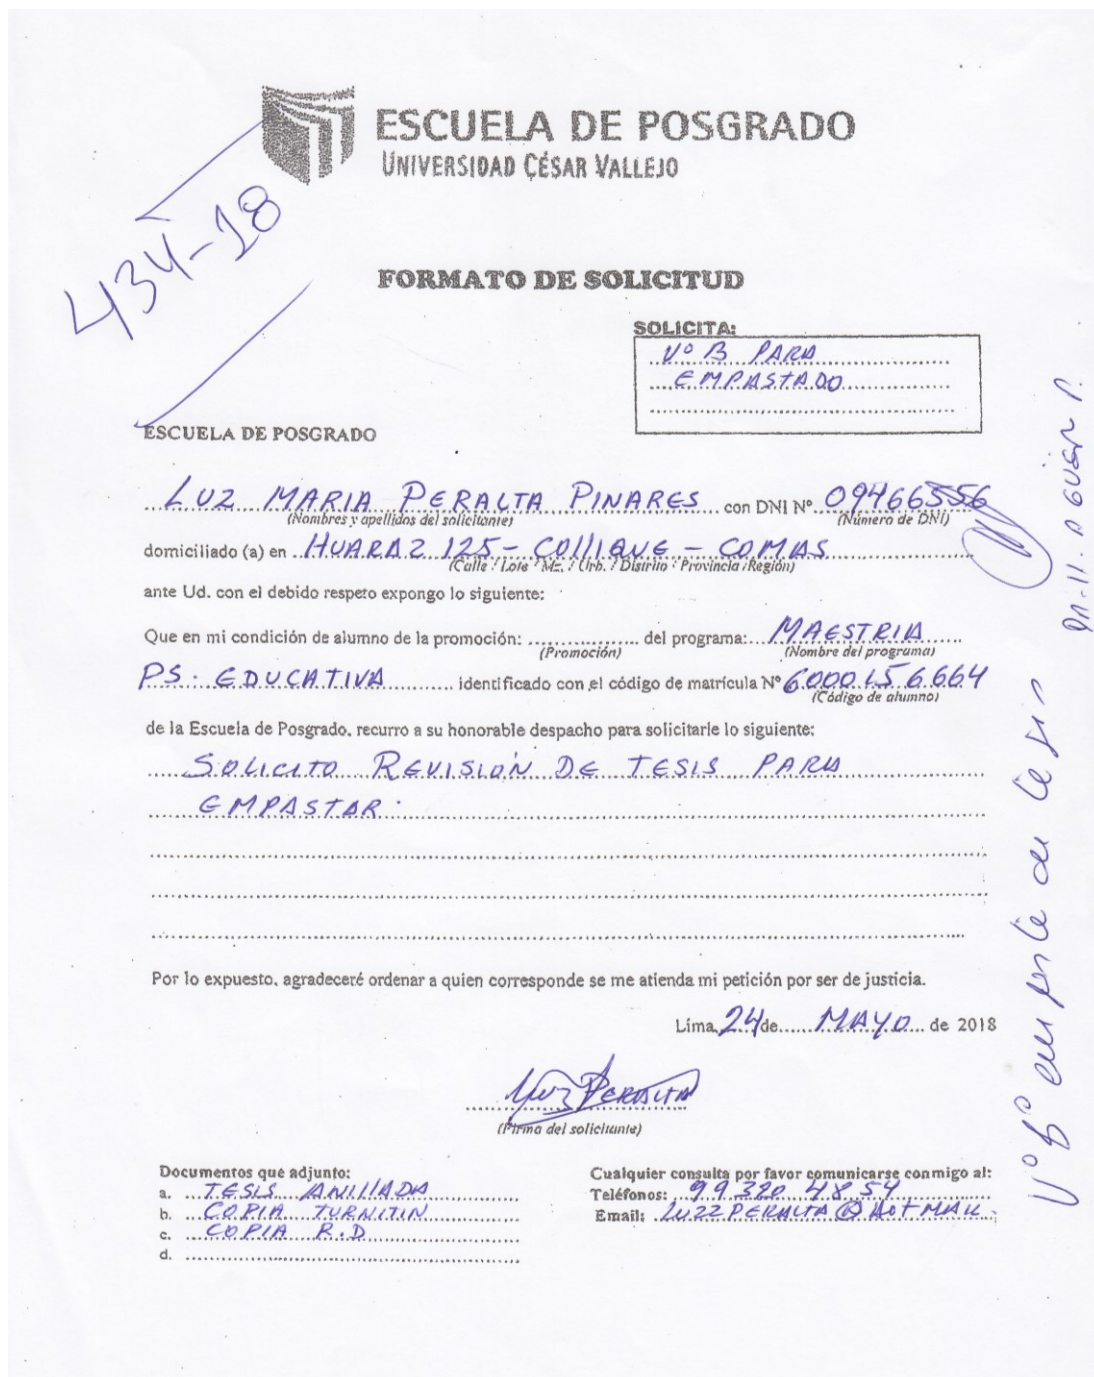 ESCUELA DE POSGRADO
UNIVERSIDAD CÉSAR VALLEJO
434-18
FORMATO DE SOLICITUD
SOLICITA:
Vº B PARA
EMPASTADO
ESCUELA DE POSGRADO
LUZ MARIA PERALTA PINARES con DNI Nº 09466556
(Nombres y apellidos del solicitante) (Número de DNI)
domiciliado (a) en HUARAZ 125 - COLLIQUE - COMAS
(Calle / Lote / Mz. / Urb. / Distrito / Provincia / Región)
ante Ud. con el debido respeto expongo lo siguiente:
Que en mi condición de alumno de la promoción: .................. del programa: MAESTRIA
(Promoción) (Nombre del programa)
PS. EDUCATIVA identificado con el código de matrícula Nº 6000156664
(Código de alumno)
de la Escuela de Posgrado, recurro a su honorable despacho para solicitarle lo siguiente:
SOLICITO REVISIÓN DE TESIS PARA
EMPASTAR.
Por lo expuesto, agradeceré ordenar a quien corresponde se me atienda mi petición por ser de justicia.
Lima, 24 de MAYO de 2018
Luz PERALTA
(Firma del solicitante)
Documentos que adjunto:
a. TESIS ANILLADA
b. COPIA TURNITIN
c. COPIA R.D
d.
Cualquier consulta por favor comunicarse conmigo al:
Teléfonos: 99320 4854
Email: LUZZPERALTA @ HOTMAIL.
Vº Bº empaste de tesis